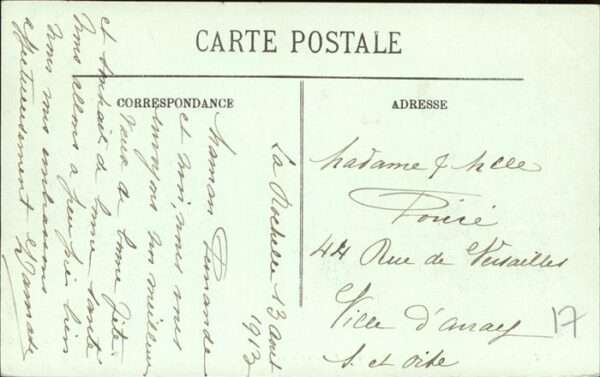 CARTE POSTALE
CORRESPONDANCE
ADRESSE
La Rochelle 13 août
1913
Maman Fernande
et moi nous vous
envoyons nos meilleurs
vœux de bonne fête
et souhait de bonne santé
Nous allons à peu près bien
Nous vous embrassons
affectueusement
Madame & Melle
44 Rue de Versailles
Ville d'avray
S. et Oise
17